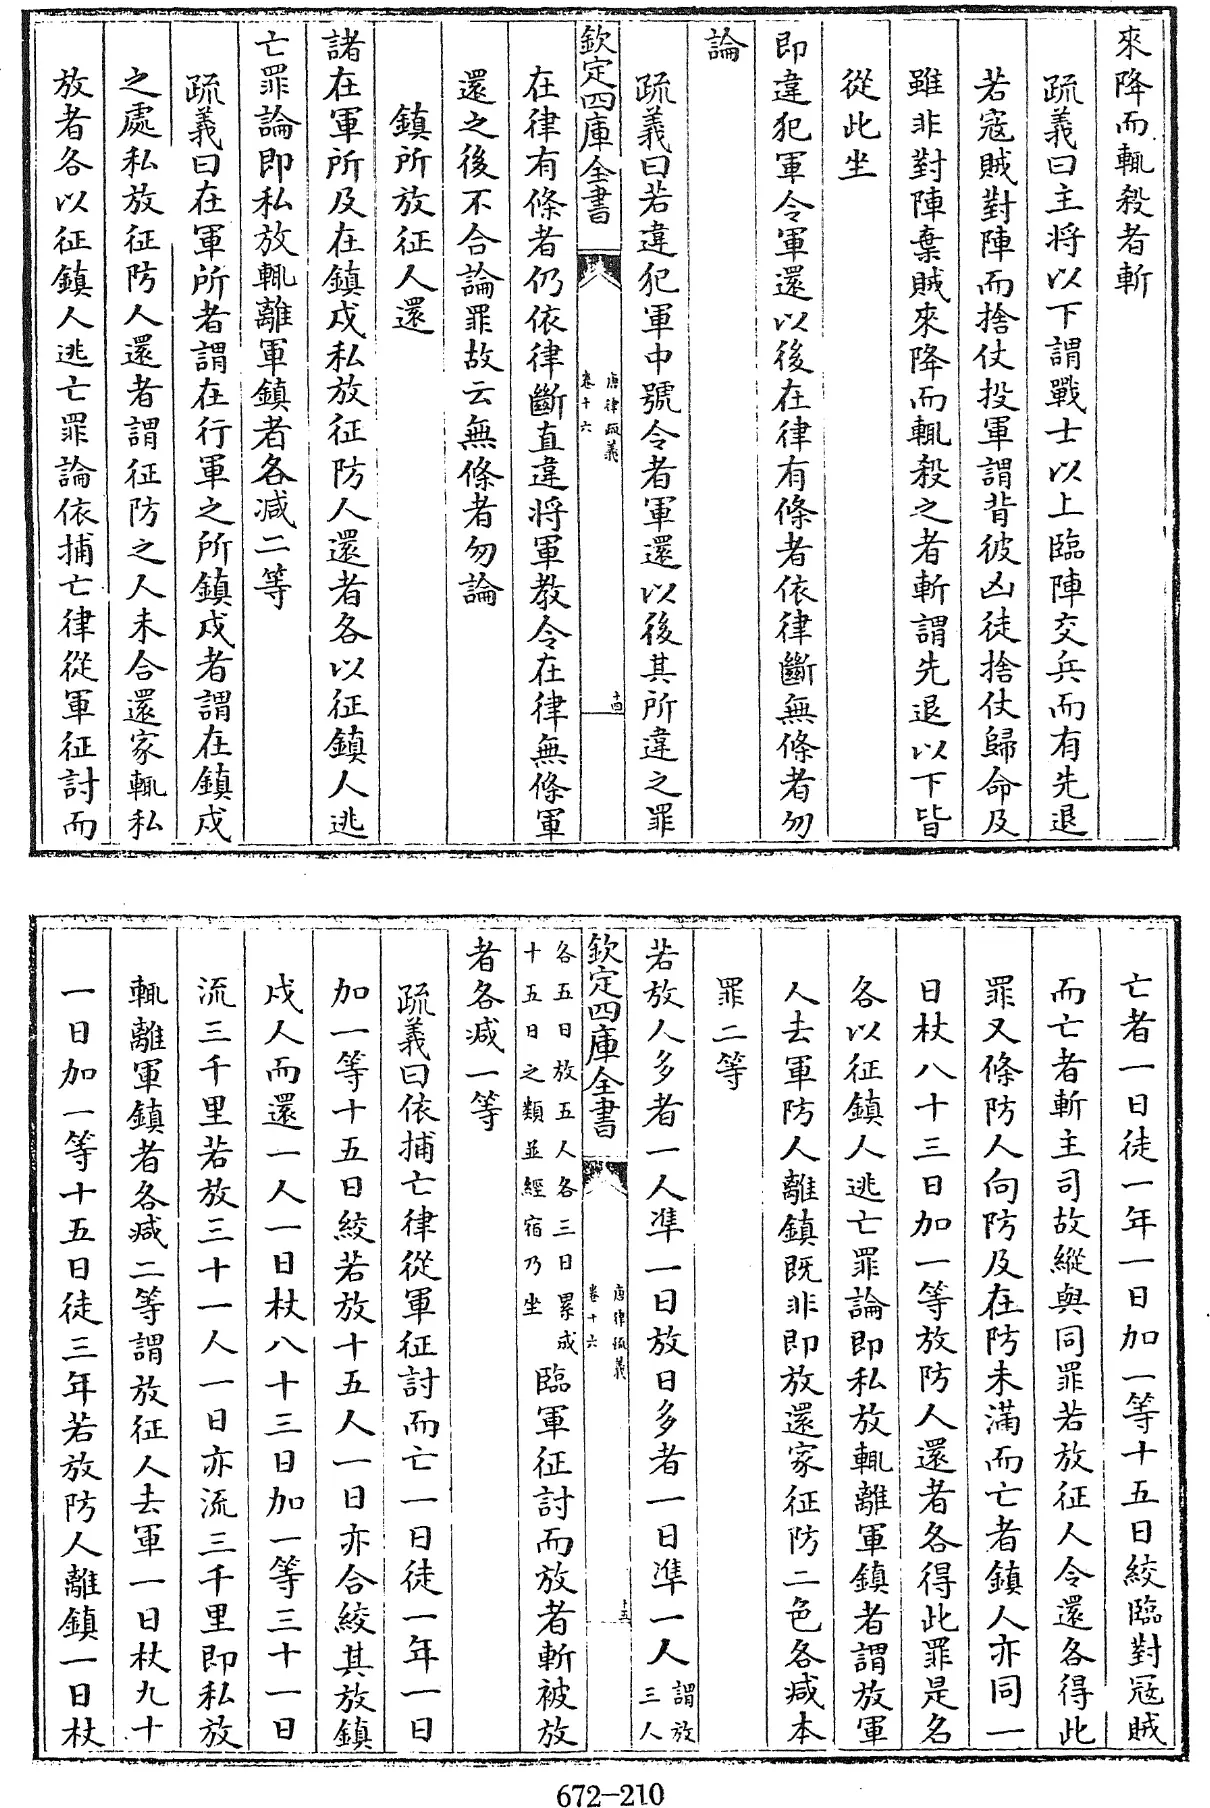 來降而輒殺者斬
疏義曰主將以下謂戰士以上臨陣交兵而有先退
若寇賊對陣而捨仗投軍謂背彼凶徒捨仗歸命及
雖非對陣棄賊來降而輒殺之者斬謂先退以下皆
從此坐
即違犯軍令軍還以後在律有條者依律斷無條者勿
論
疏義曰若違犯軍中號令者軍還以後其所違之罪
欽定四庫全書
唐律疏義
卷十六
十四
在律有條者仍依律斷直違將軍教令在律無條軍
還之後不合論罪故云無條者勿論
鎮所放征人還
諸在軍所及在鎮戍私放征防人還者各以征鎮人逃
亡罪論即私放輒離軍鎮者各減二等
疏義曰在軍所者謂在行軍之所鎮戍者謂在鎮戍
之處私放征防人還者謂征防之人未合還家輒私
放者各以征鎮人逃亡罪論依捕亡律從軍征討而
亡者一日徒一年一日加一等十五日絞臨對冦賊
而亡者斬主司故縱與同罪若放征人令還各得此
罪又條防人向防及在防未滿而亡者鎮人亦同一
日杖八十三日加一等放防人還者各得此罪是名
各以征鎮人逃亡罪論即私放輒離軍鎮者謂放軍
人去軍防人離鎮既非即放還家征防二色各減本
罪二等
若放人多者一人準一日放日多者一日準一人謂放
三人
欽定四庫全書
唐律疏義
卷十六
十五
各五日放五人各三日累成
十五日之類並經宿乃坐臨軍征討而放者斬被放
者各減一等
疏義曰依捕亡律從軍征討而亡一日徒一年一日
加一等十五日絞若放十五人一日亦合絞其放鎮
戍人而還一人一日杖八十三日加一等三十一日
流三千里若放三十一人一日亦流三千里即私放
輒離軍鎮者各減二等謂放征人去軍一日杖九十
一日加一等十五日徒三年若放防人離鎮一日杖
672-210